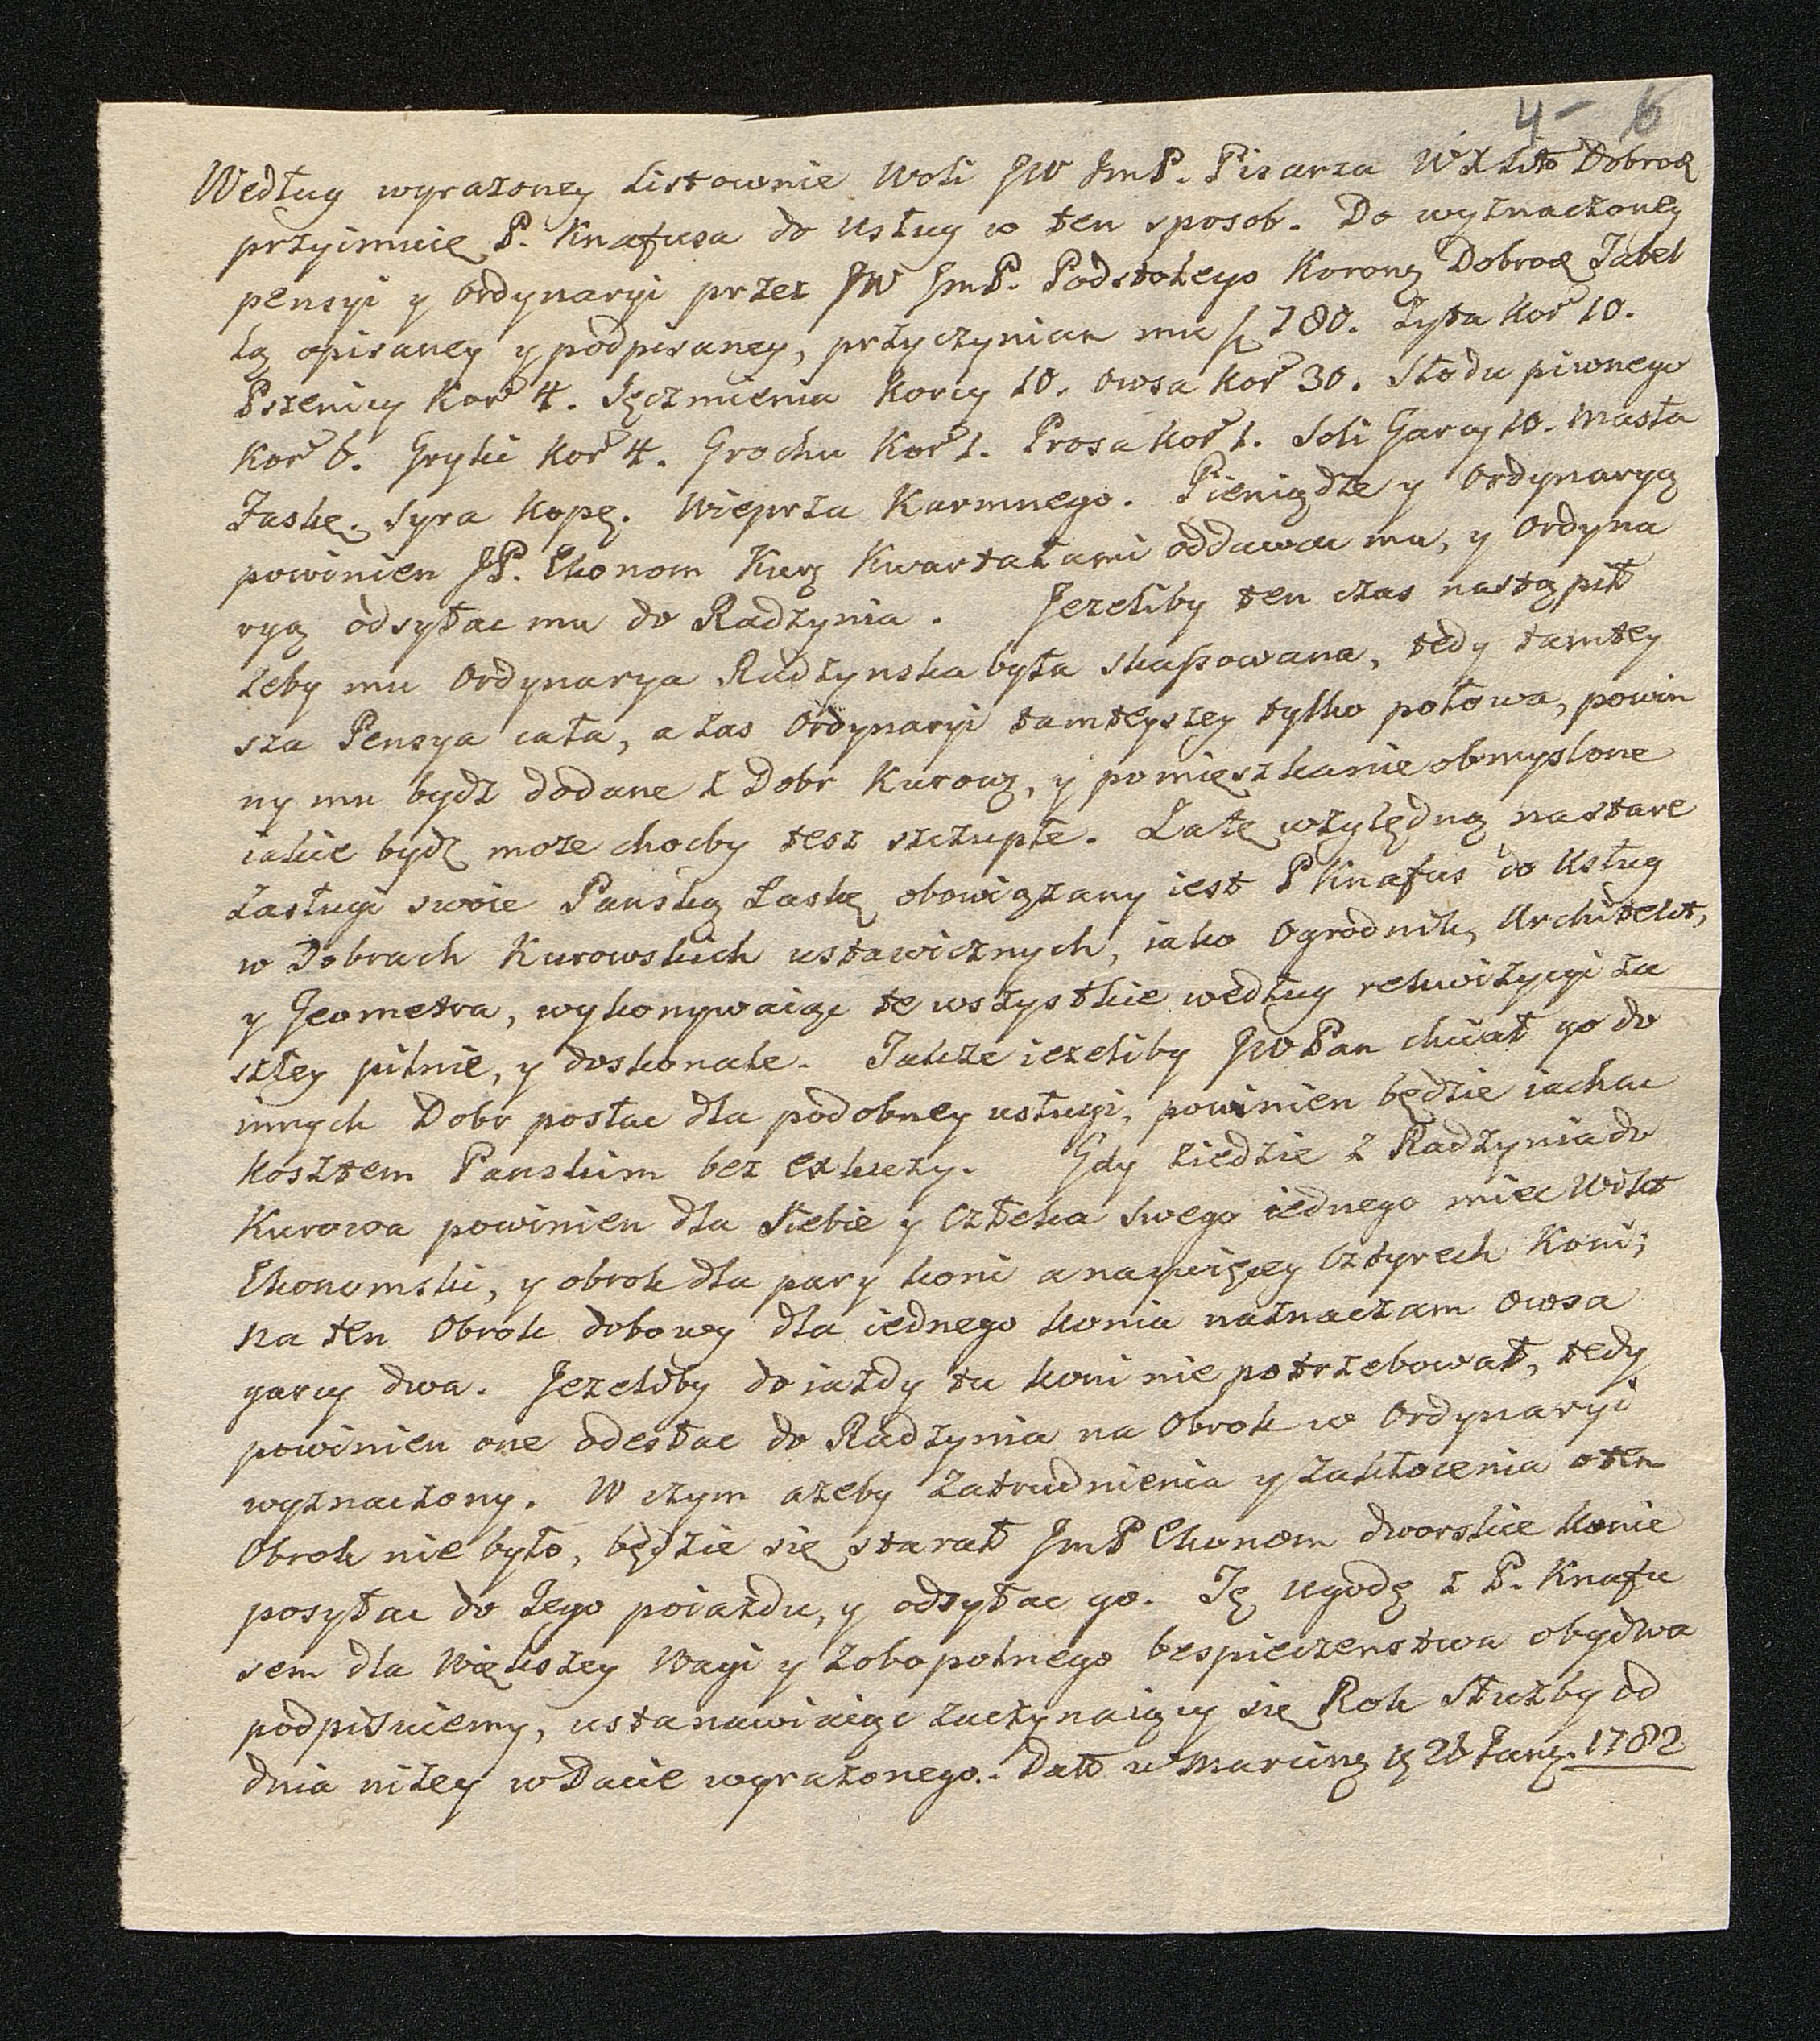 4 6
Według wyrażoney Listownie Woli JW JmP. Pisarza WX Litō Dobrod
przyimuię P. Knafusa do usług w ten sposob. Do wyznaczoney
pensyi y Ordynaryi przez JW JmP. Podstolego Koronn Dobrod Tabel
lą opisaney y podpisaney, przyczyniam mu 780. Żyta Kor 10.
Pszenicy Kor 4. Jęczmienia Korcy 10. Owsa Kor 30. Słodu piwnego
Kor 6. Gryki Kor 4. Grochu Kor 1. Prosa Kor 1. Soli Garcy 10. Masła
Faskę. Syra Kopę. Wieprza Karmnego. Pieniądze y Ordynaryą
powinien JP. Ekonom Kur Kwartałami oddawac mu, y Ordyna
ryą odsyłac mu do Radzynia. Jezeliby ten czas nastąpił
żeby mu Ordynarya Radzynska była skassowana, tedy tamtey
sza Pensya cała, a zas Ordynaryi tamteyszey tylko połowa, powin
ny mu bydz dodane z Dobr Kurow, y pomięszkanie obmyslone
iakie bydz moze chocby tesz szczupłe. Za tę względną na stare
zasługi swoie Panską Łaskę obowiązany iest P Knafus do Usług
w Dobrach Kurowskich ustawicznych, iako Ogrodnik, Architekt,
y Jeometra, wykonywaiąc te wszystkie według rekwizycyi za
szłey pilnie, y doskonale. Takze iezeliby JWPan chciał go do
innych Dobr posłac dla podobney usługi, powinien będzie iachac
Kosztem Panskim bez exkuzy. Gdy ziedzie z Radzynia do
Kurowa powinien dla siebie y Człeka swego iednego miec Wikt
Ekonomski, y obrok dla pary koni a naywięcey Cztyrech Koni;
na ten Obrok dobowy dla iednego konia naznaczam Owsa
garcy dwa. Jezeliby do iazdy tu koni nie potrzebował, tedy
powinien one odesłac do Radzynia na Obrok w Ordynaryi
wyznaczony. W czym azeby zatrudnienia y zakłocenia o ten
Obrok nie było, będzie się starał JmP Ekonom dworskie konie
posyłac do Jego poiazdu, y odsyłac go. Tę Ugodę z P. Knafu
sem dla większey Wagi y zobopolnego bespieczenstwa obydwa
podpisuiemy, ustanawiaiąc zaczynaiący się Rok Służby od
dnia niżey w Dacie wyrażonego. Datō w 1782